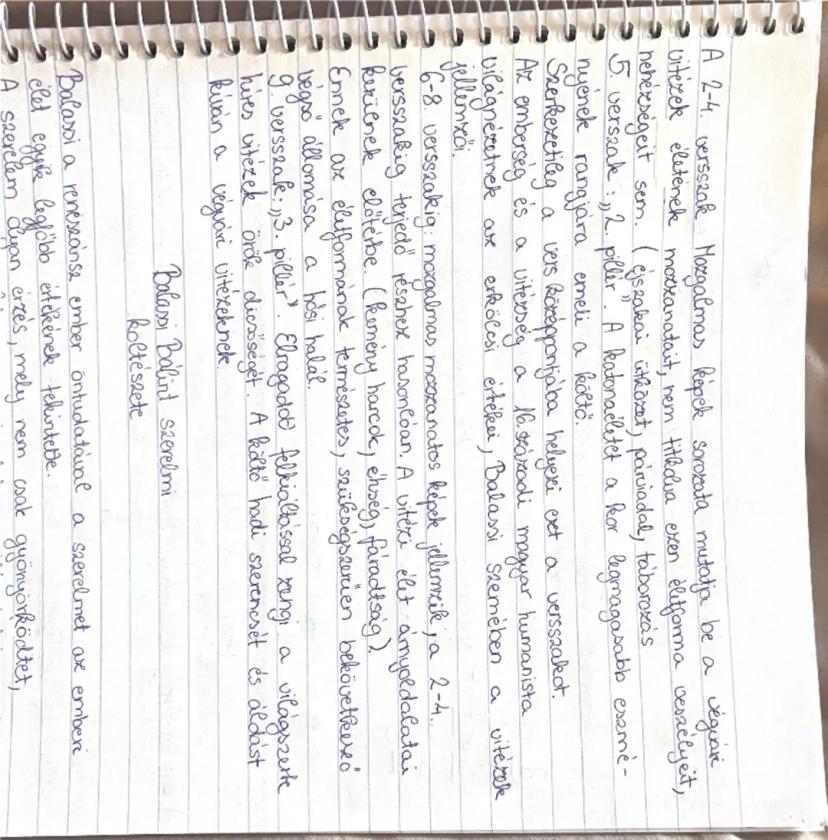 A 2-4. versszak Mozgalmas képek sorozata mutatja be a végvári
vitézek életének mozzanatait, nem titkolva ezen életforma veszélyeit,
nehézségeit sem. (éjszakai ütközet, párviadal, táborozás
5. versszak: „2. pillér". A katonaéletet a kor legmagasabb eszmé-
nyének rangjára emeli a költő.
Szerkezetileg a vers középpontjába helyezi ezt a versszakot.
Az emberség és a vitézség a 16. századi magyar humanista
világnézetnek az erkölcsi értékei, Balassi szemében a vitézek
jellemzői.
6-8. versszakig mozgalmas mozzanatos képek jellemzik, a 2-4.
versszakig terjedő részhez hasonlóan. A vitézi élet árnyoldalatai
kerülnek előtérbe. (kemény harcok, éhség, fáradtság)
Ennek az életformának természetes, szükségszerűen bekövetkező
végső állomása a hősi halál.
9. versszak: „3. pillér". Elragadó felkiáltással zengi a világszerte
híres vitézek örök dicsőségét. A költő hadi szerencsét és áldást
kíván a végvári vitézeknek.
Balassi Bálint szerelmi
költészete
Balassi a reneszánsz ember öntudatával a szerelmet az emberi
élet egyik legfőbb értékének tekintette.
A szerelem olyan érzés, mely nem csak gyönyörködtet,